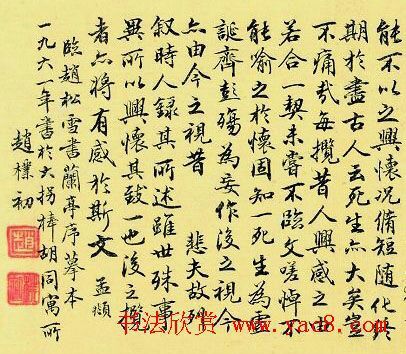 能不以之興懷況脩短隨化終
期於盡古人云死生亦大矣豈
不痛哉每攬昔人興感之由
若合一契未嘗不臨文嗟悼不
能喻之於懷固知一死生為虛
誕齊彭殤為妄作後之視今
亦由今之視昔 悲夫故列
叙時人録其所述雖世殊事
異所以興懷其致一也後之攬
者亦將有感於斯文 孟頫
臨趙松雪書蘭亭序摹本
一九六一年書於大拐棒胡同寓所
趙樸初
书法欣赏 www.yac8.com